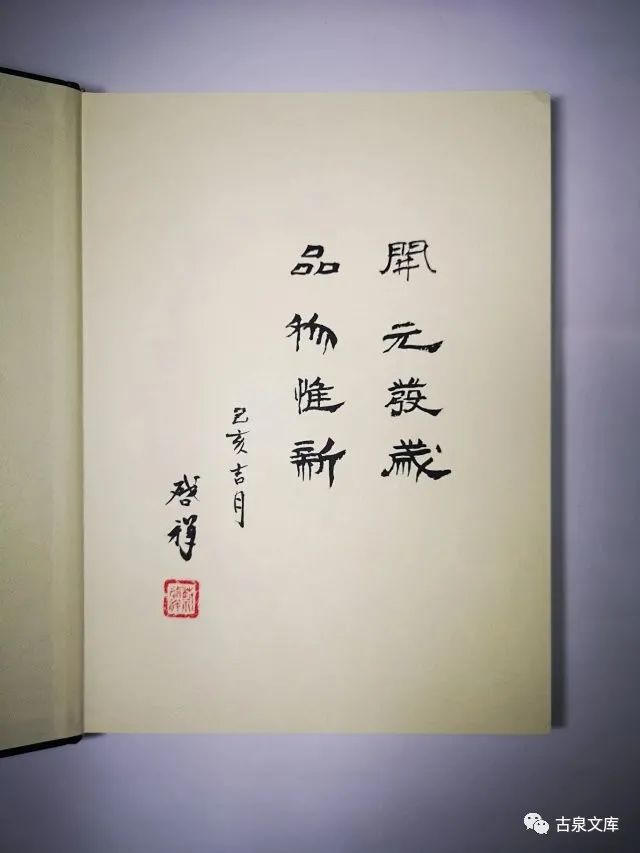 開元發歲
品物惟新
己亥吉月
啓祥
古泉文库